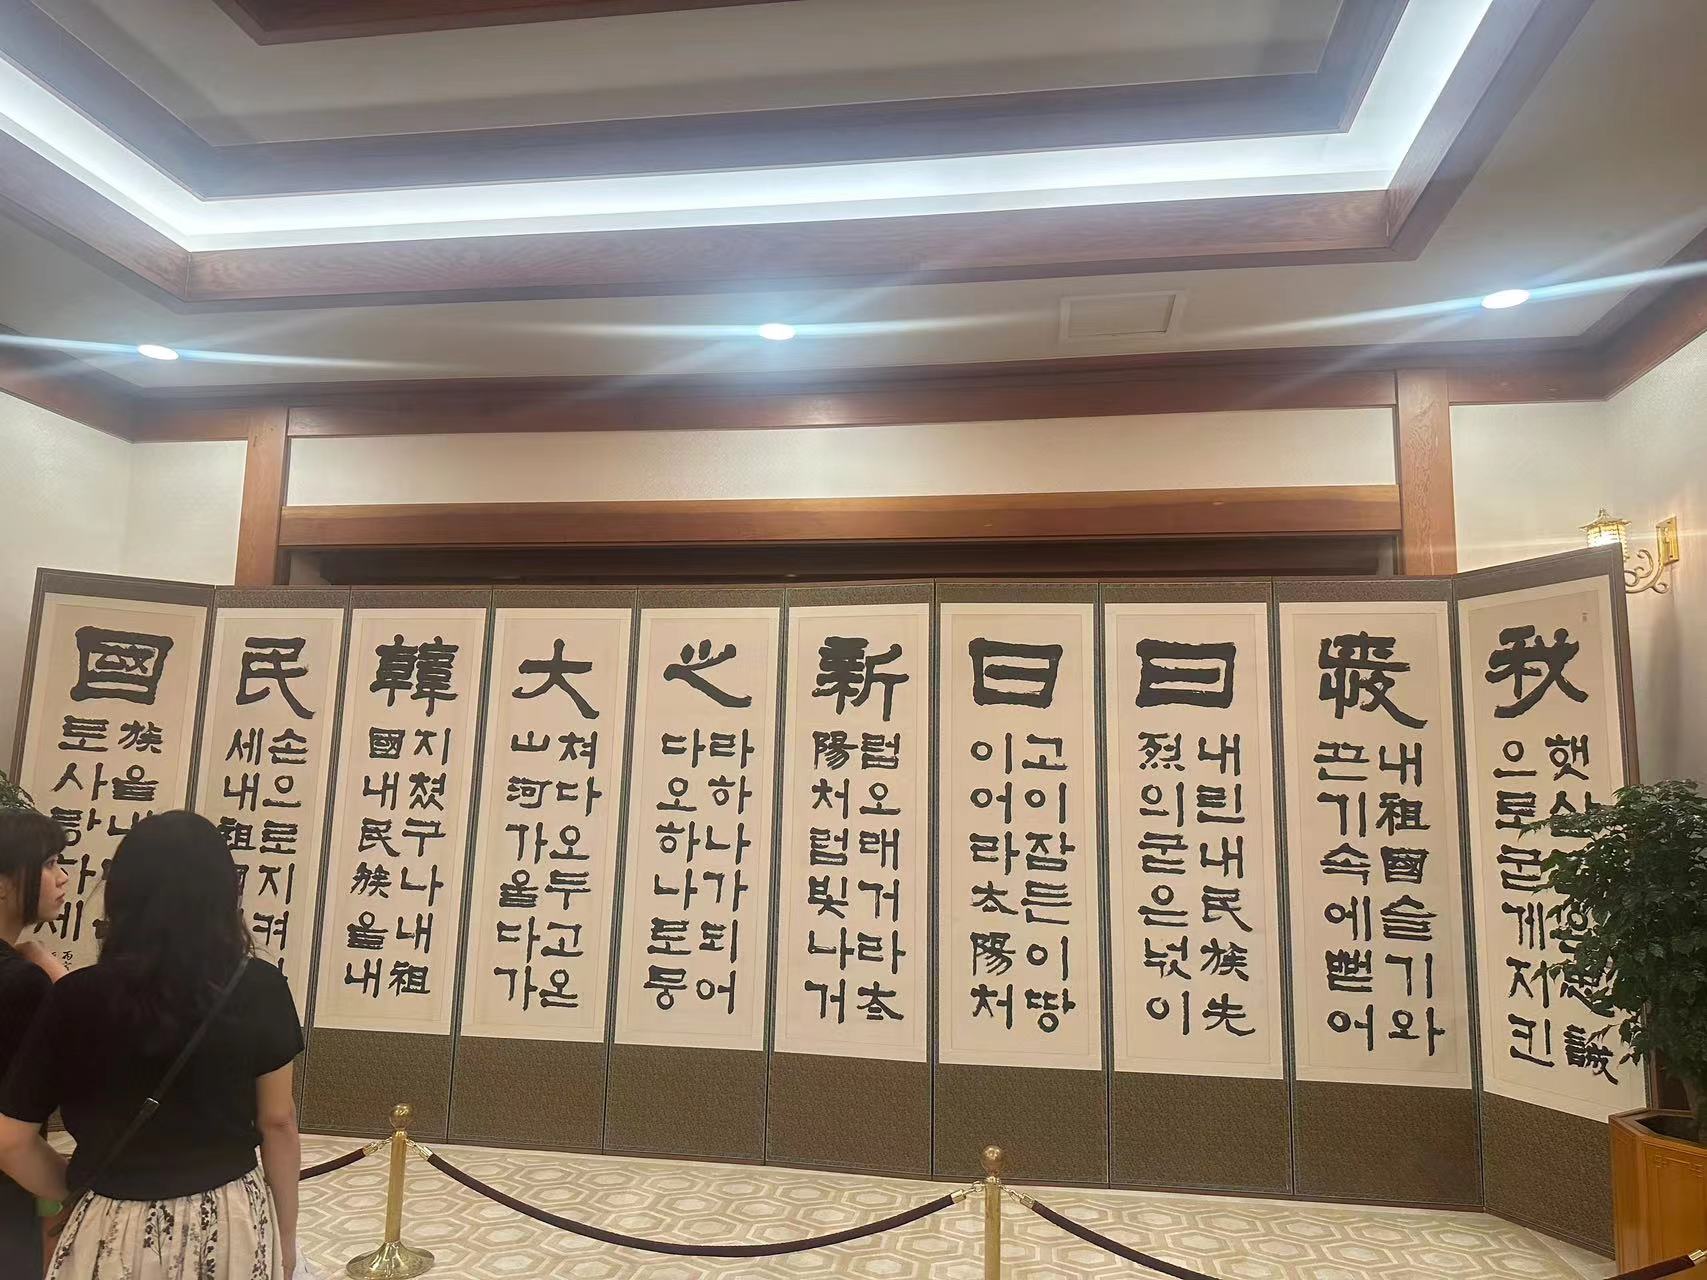 秋 日日新之大韓民國
햇 忠誠
으로굳게지킨
내祖國슬기와
끈기속에뻗어
내린내民族先
烈의굳은넋이
고이잠든이땅
이어라太陽처
럼오래거라太
陽처럼빛나거
라하나가되어
다오하나토뭉
쳐다오두고온
山河가을다가
지쳤구나내祖
國내民族을내
손으로지켜
세내祖
族을내
토사랑하세